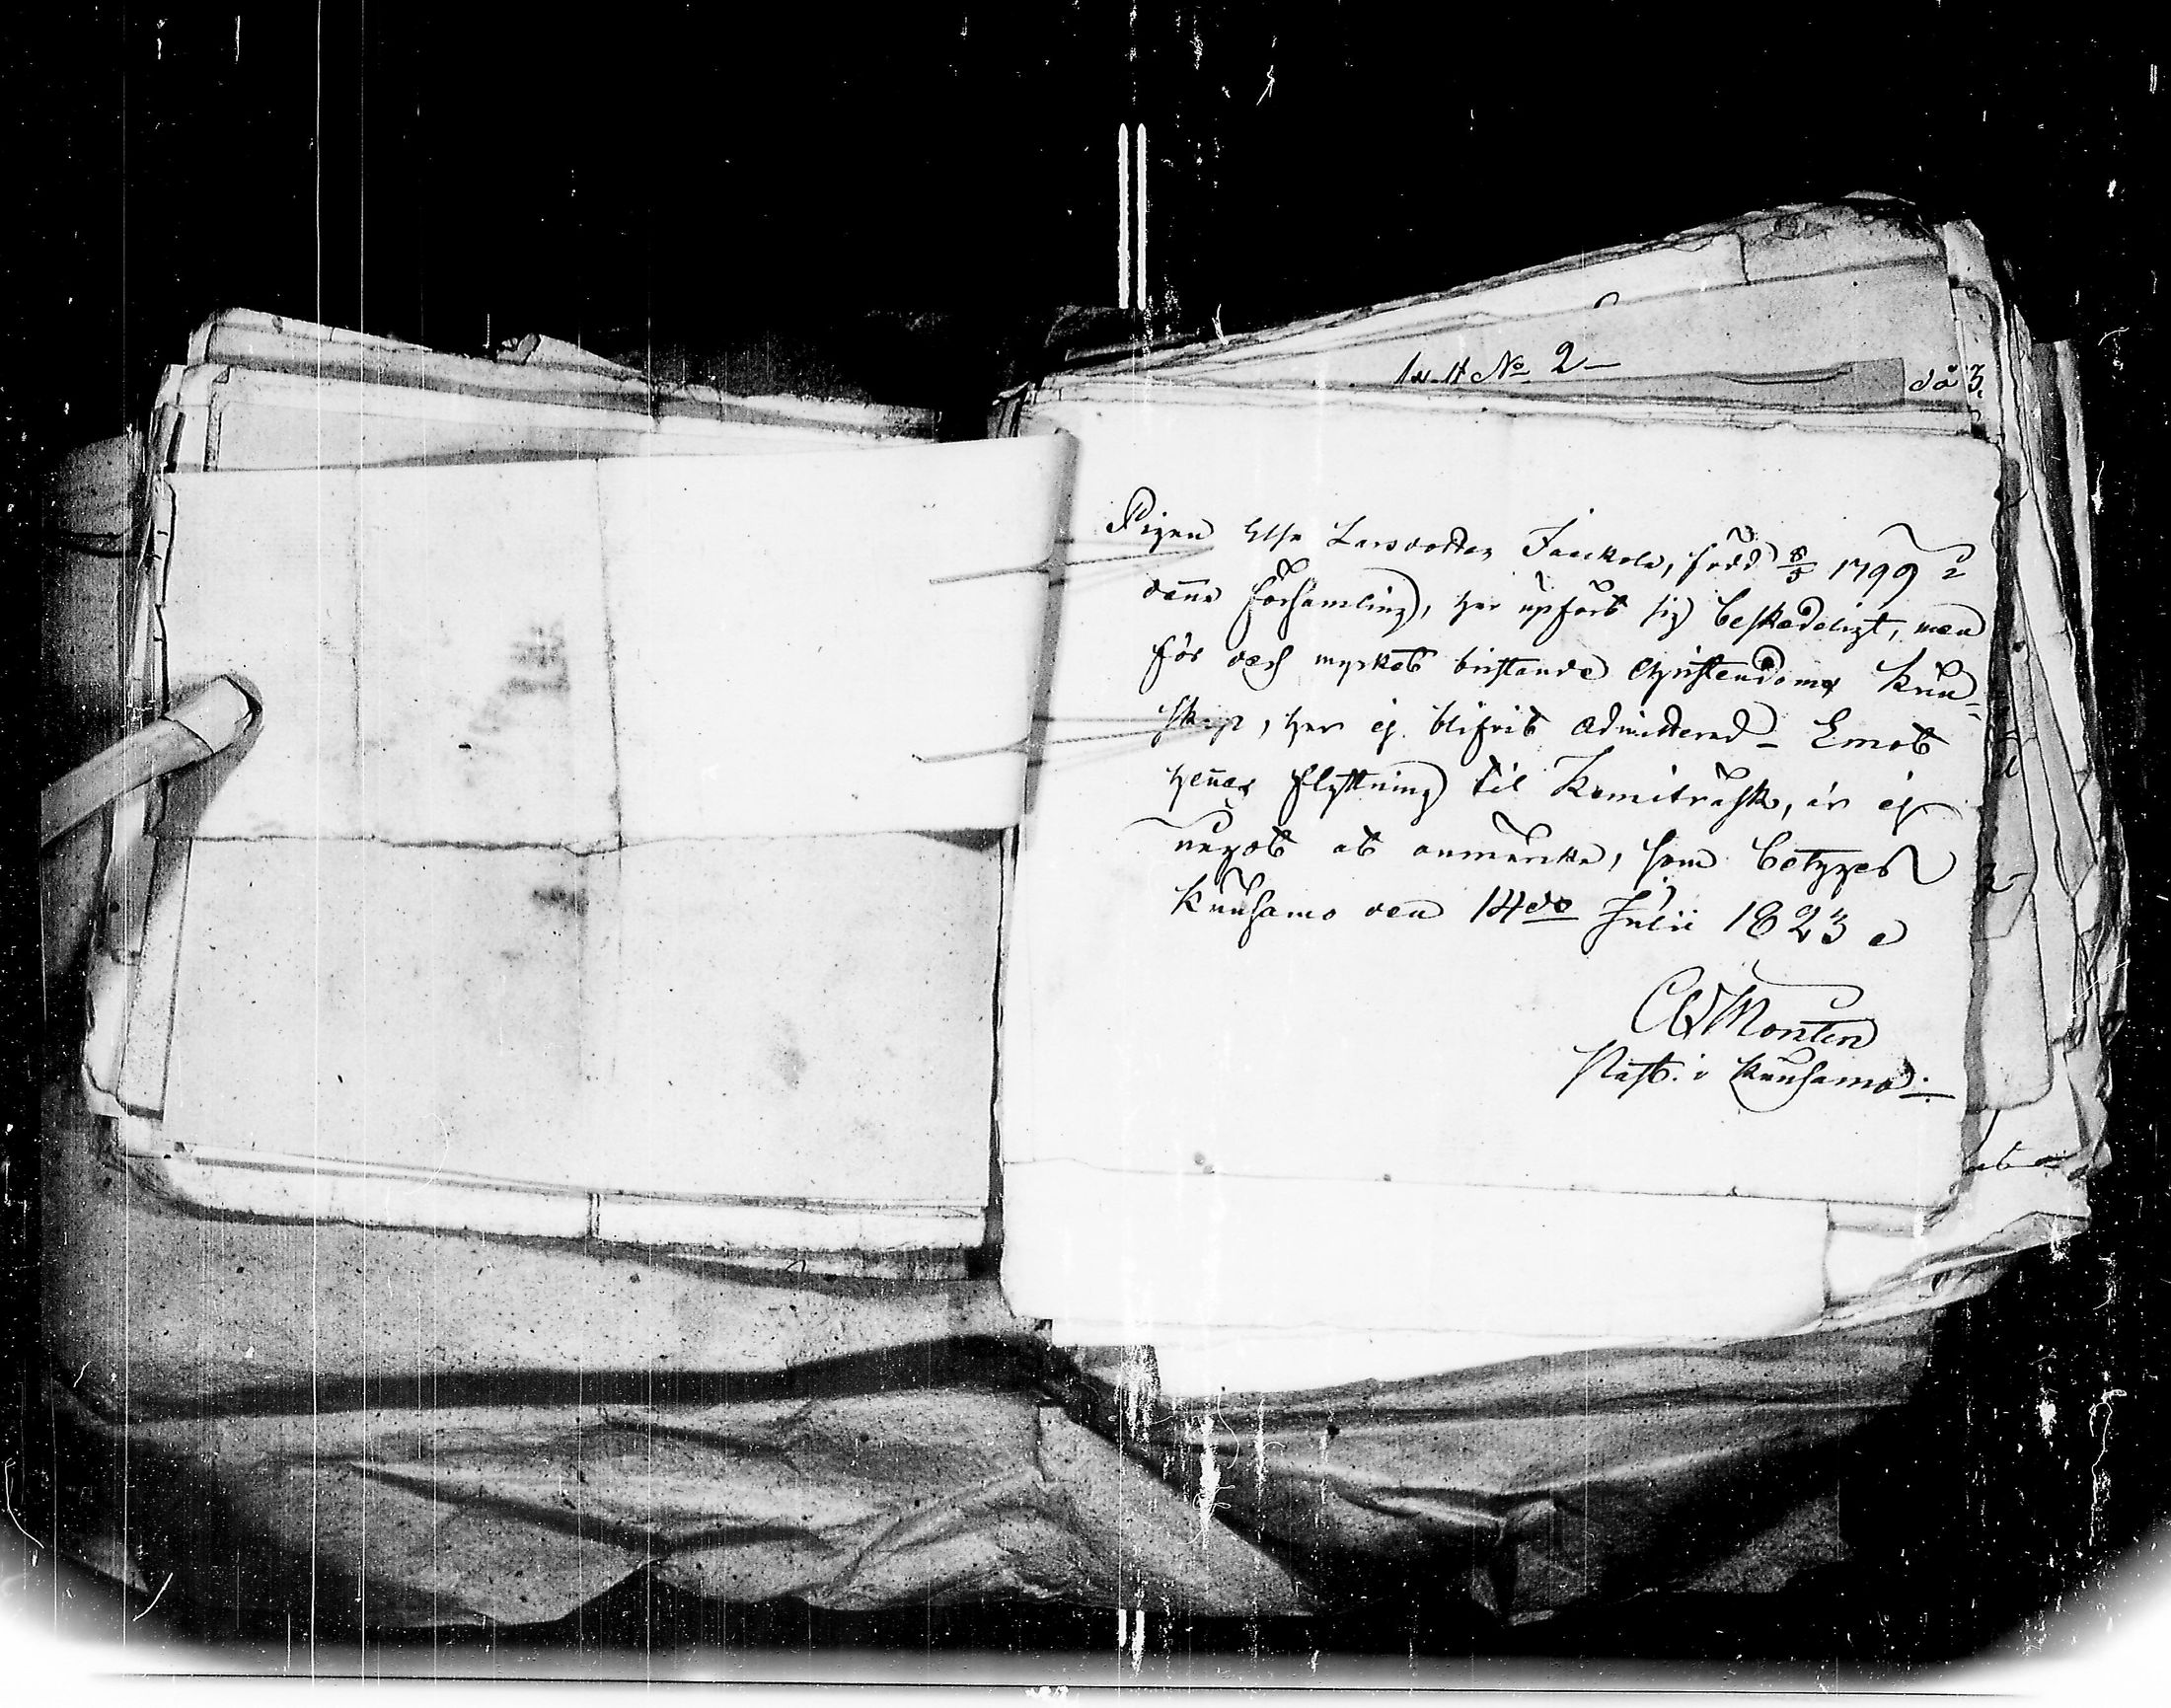 No 2
då 3
Pigan Elsa Larsdotter Jaakola, född 8/5 1799 i
denna Församling, har upfört sig beskedeligt, men
för dess mycket bristande Christendoms kun-
skap, har ej blifvit admitterad – Emot
hennes flyttning til Kemiträsk, är ej
något at anmärka, som betygas
Kuusamo den 14de Julii 1823
Montin
Past. i Kuusamo.